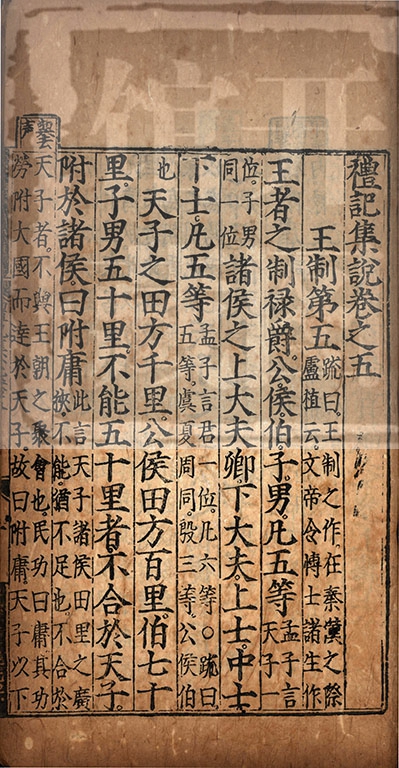 禮記集說卷之五
王制第五
疏曰王制之作在秦漢之際
盧植云文帝令博士諸生作
王者之制祿爵。公。侯。伯。子。男。凡五等
孟子言
天子一
位。子男
同一位
諸侯之上大夫卿。下大夫。上士。中士。
下士。凡五等
孟子言君一位。凡六等○疏曰
五等。虞夏周同。殷三等。公侯伯
也
天子之田方千里。公侯田方百里。伯七十
里。子男五十里。不能五十里者。不合於天子。
附於諸侯。曰附庸
此言天子諸侯田里之廣
狹不能。猶不足也。不合於
天子者。不與王朝之聚會也。民功曰庸。其功
勞附大國而達於天子。故曰附庸。天子以下